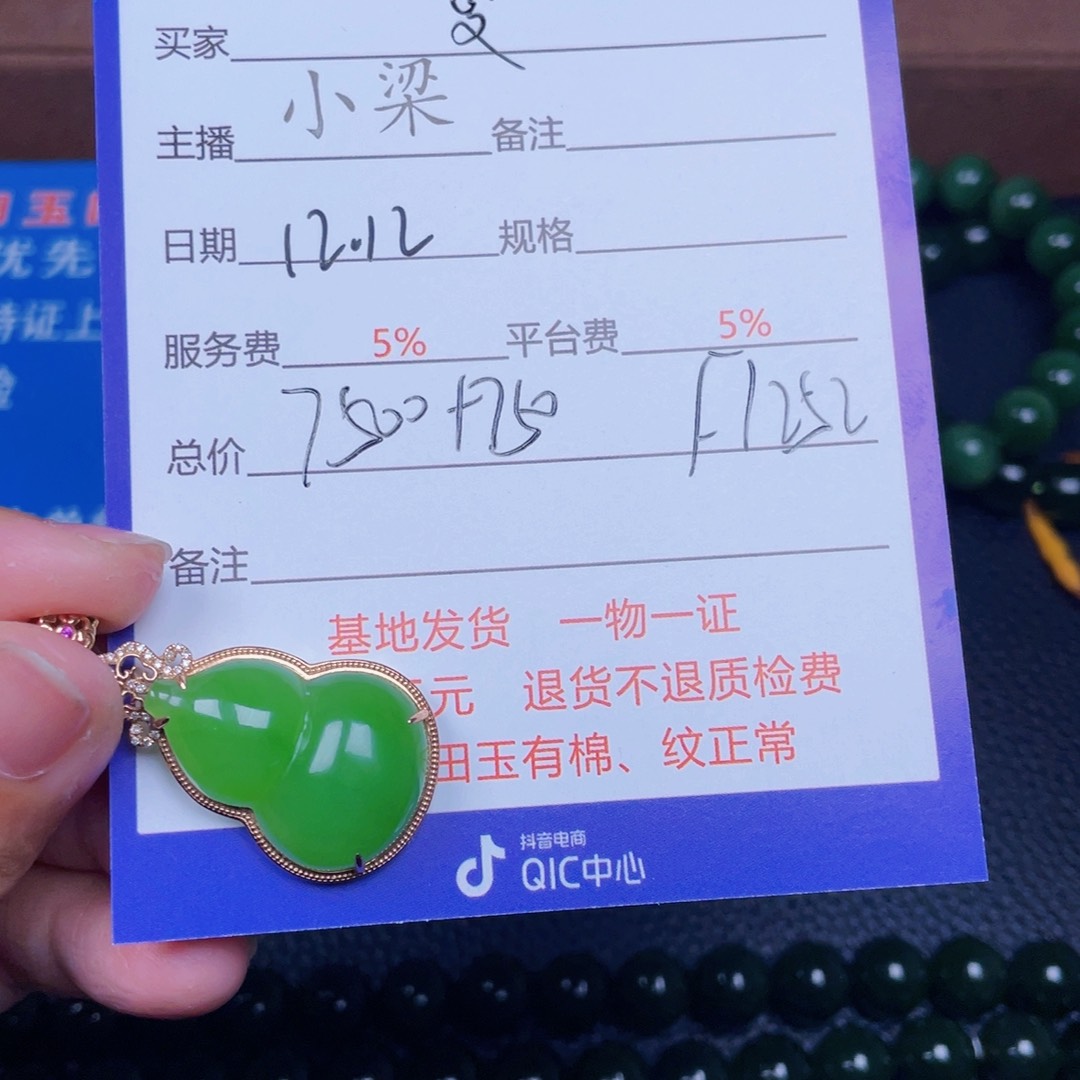 买家
主播 小梁 备注
日期 12.12 规格
服务费 5% 平台费 5%
总价 7500+750 F1252
备注
基地发货 一物一证
元 退货不退质检费
田玉有棉、纹正常
抖音电商
QIC中心
玉
优先
持证上